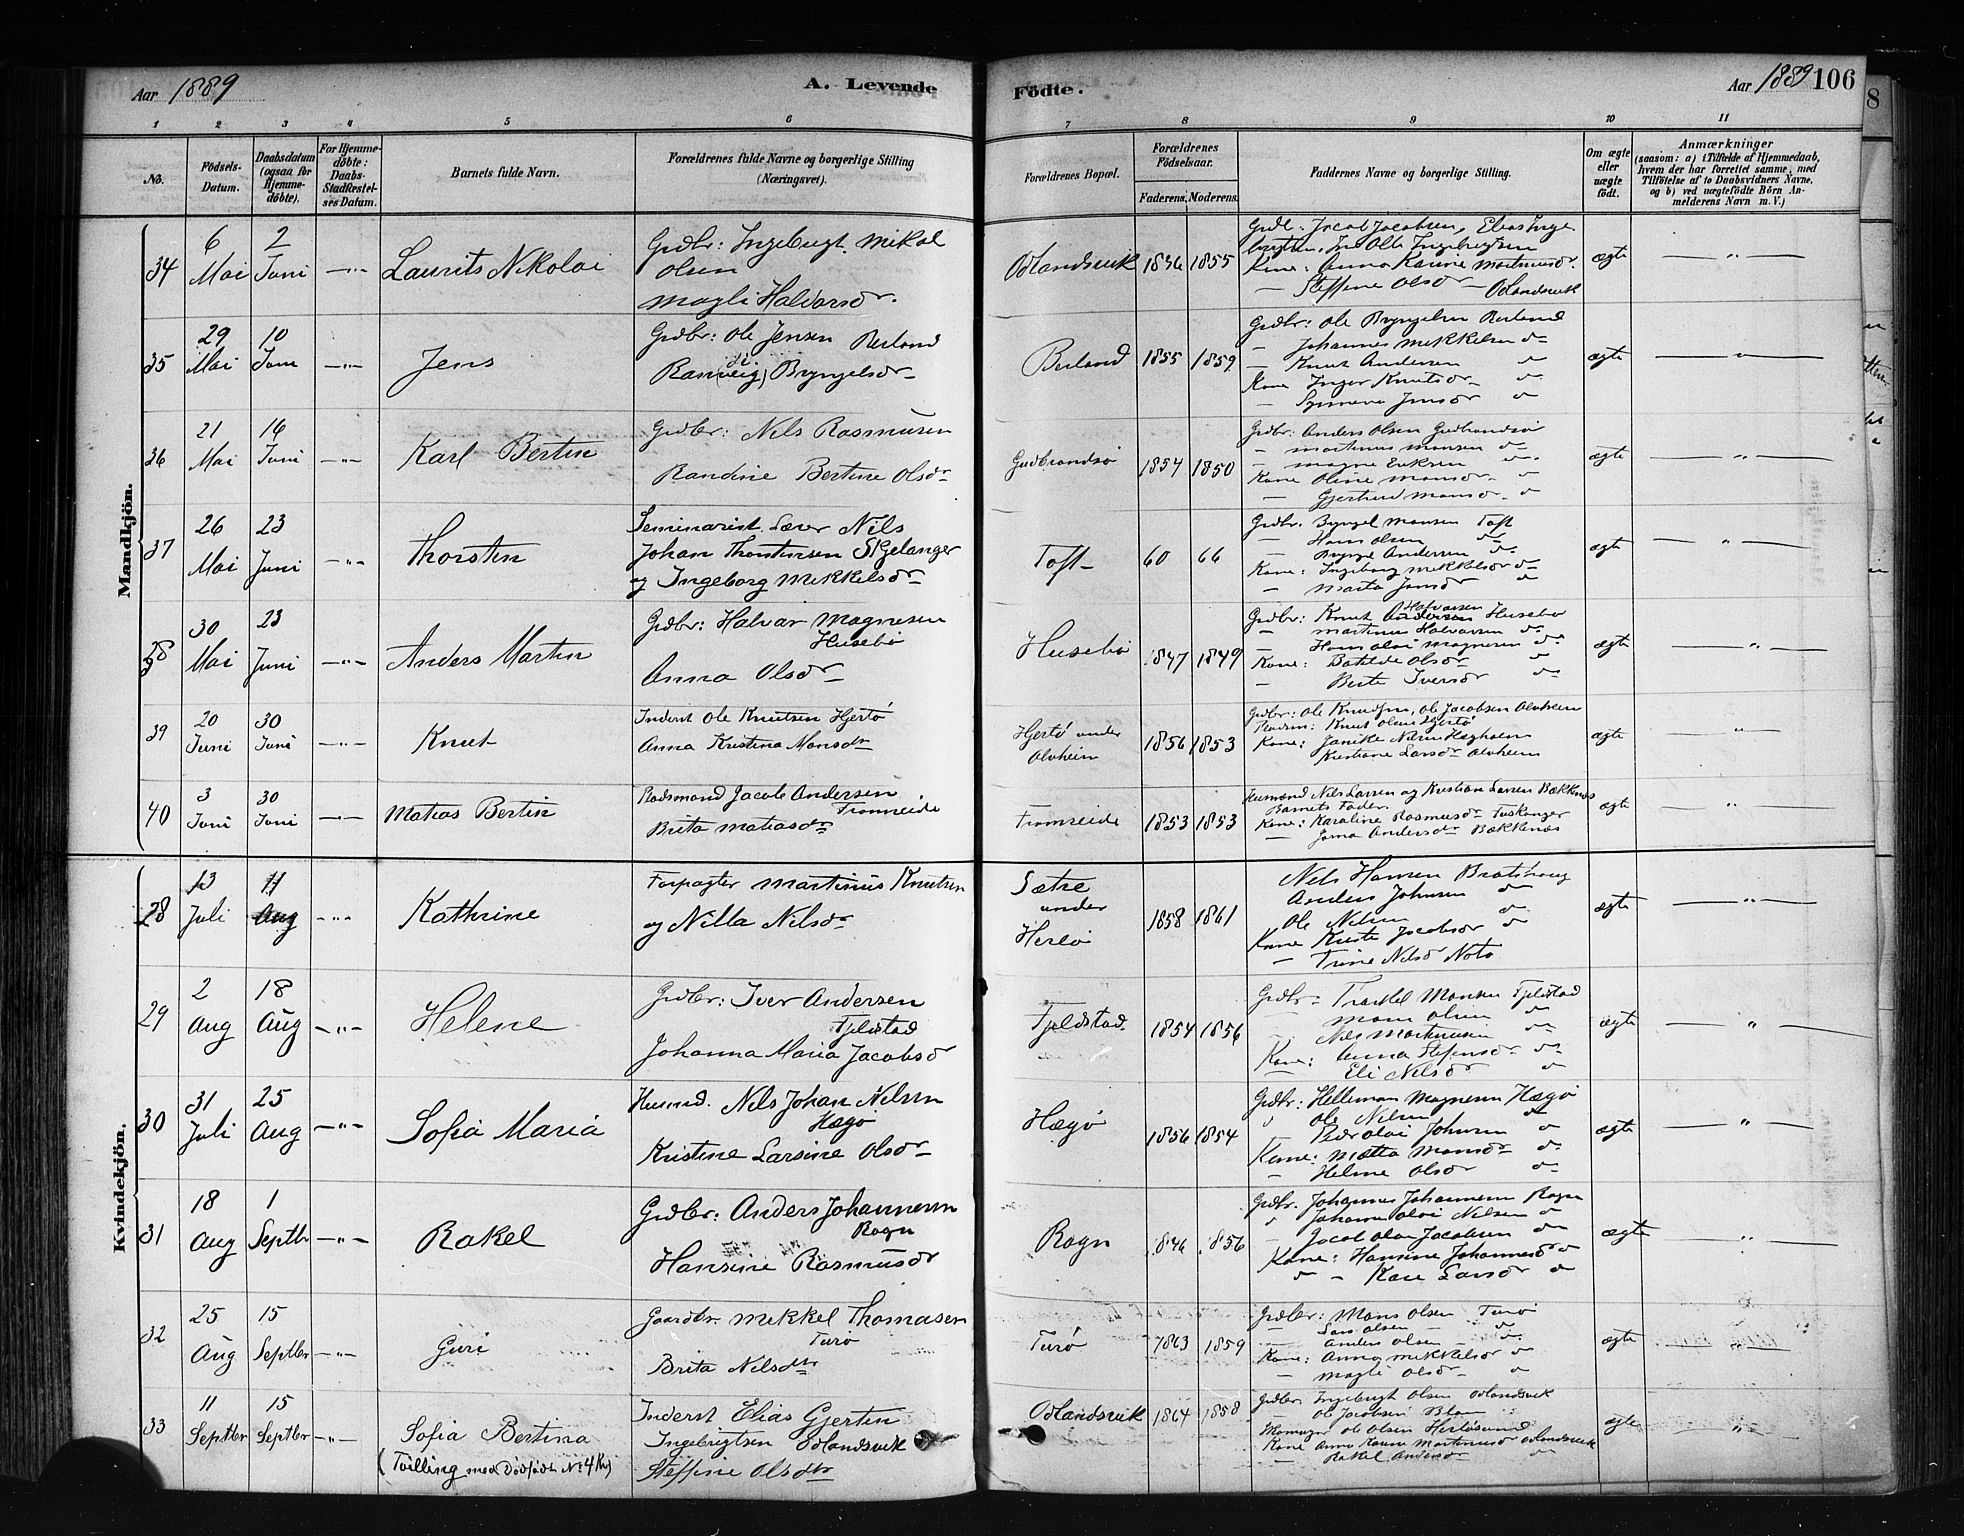 Aar 1889 A. Levende Födte. Aar 1889 106
8
1 2 3 4 5 6 7 8 9 10 11
No. Födsels-Datum. Daabsdatum (ogsaa for Hjemmedöbte). For Hjemmedöbte: Daabs-Stadfæstelses Datum. Barnets fulde Navn. Forældrenes fulde Navne og borgerlige Stilling (Næringsvei). Forældrenes Bopæl. Forældrenes Födselsaar. Faderens. Moderens. Faddernes Navne og borgerlige Stilling. Om ægte eller uægte födt. Anmærkninger (saasom: a) i Tilfælde af Hjemmedaab, hvem der har forrettet samme, med Tilföielse af to Daabsvidners Navne, og b) ved uægtefödte Börn Anmelderens Navn m. V.)
Mandkjön.
34 6 Mai 2 Juni -„- Laurits Nikolai
Grdbr: Ingebrigt Mikal
Olsen
Magli Halvorsdr.
Odlandsvik 1836 1855
Grdbr: Jacob Jacobsen, Elias Inge
brigtsen, Ole Ingebrigtsen
Kone: Anna Karine Martinusdr.
— Steffine Olsdr — Odlandsvik
ægte — „ —
35 29 Mai 10 Juni -„- Jens
Grdbr: Ole Jensen Berland
Ranveig Bryngelsdr
Berland 1855 1859
Grdbr: Ole Bryngelsen Berland
— Johannes Mikkelsen do
— Knut Andersen do
Kone Inger Knutsdr do
— Synneva Jensdr do
ægte — „ —
36 21 Mai 16 Juni -„- Karl Bertin
Grdbr: Nils Rasmusen
Randine Bertine Olsdr
Gudbrandsö 1854 1850
Grdbr: Anders Olsen Gudbrandsö
— Martinus Monsen do
— Magne Eriksen do
Kone Oline Monsdr do
— Gjertrud Monsdr. do
ægte — „ —
37 26 Mai 23 Juni -„- Thorsten
Seminarist Lærer Nils
Johan Thorstensen Skjelanger
og Ingeborg Mikkelsdr
Toft 60 66
Grdbr. Bryngel Monsen Toft
— Hans Olsen do
— Andersen do
Kone: Ingeborg Mikkelsdr do
— Marta Jonsdr do
ægte — „ —
38 30 Mai 23 Juni -„- Anders Martin
Grdbr: Halvar Magnesen
Husebö
Anna Olsdr
Husebö 1847 1849
Halvarsen
Grdbr: Knut Andersen Husebö
— Martinus Halvarsen do
— Hans Olai Magnesen do
Kone: Botilde Olsdr do
— Berte Iversdr do
ægte — „ —
39 20 Juni 30 Juni -„- Knut
Inderst Ole Knutsen Hjertö
Anna Kristina Monsdtr
Hjertö under Alvheim 1856 1853
Grdbr: Ole Knudsen, Ole Jacobsen Alvheim
Knut Olsen Hjertö
Kone: Janike Nilsen
Kristiane Larsdr Alvheim
ægte „
40 3 Juni 30 Juni -„- Matias Bertin
Pladsmand Jacob Andersen
Tromreide
Brita Matiasdtr
Tromreide 1853 1853
Husmand Nils Larsen og Kristian Larsen Bækknæs
Barnets Fader.
Kone: Karoline Rasmusdr
— Andersdr Bækknæs
ægte „
Kvindekjön.
28 13 Juli 11 Aug -„- Kathrine
Forpagter Martinus Knutsen
og Nilla Nilsdr
Sætre under Herlö 1858 1861
Nels Hansen
Anders Johnsen do
Ole Nilsen do
Kone Jacobsdr do
— Trine Nilsd
ægte — „ —
29 2 Aug 18 Aug -„- Helene
Grdbr: Iver Andersen
Fjeldstad
Johanna Maria Jacobsdr
Fjeldstad. 1854 1856
Grdbr — Monsen Fjeldstad
— Mons Olsen do
— Nils Martinusen do
Kone: Anna Stefensdr do
— Eli Nilsdr do
ægte — „ —
30 31 Juli 25 Aug -„- Sofia Maria
Husmd. Nils Johan Nilsen
Hægö
Kristine Larsine Olsdr
Hægö 1856 1854
Grdbr: Helleman Magnesen Hægö
„ Ole Nilsen do
Peder Olai Johnsen do
Kone: Matta Monsdr do
— Helene Olsdr do
ægte — „ —
31 18 Aug 1 Septbr -„- Rakel
Grdbr: Anders Johannesen
Rogn
Hansine Rasmusdr
Rogn 1846 1856
Grdbr. Johannes Johannesen Rogn
Olai Nilsen do
— Jacob Olai Jacobsen do
Kone: Hansine Johannesdr do
— Kari Larsdr do
ægte — „ —
32 25 Aug 15 Septbr -„- Guri
Gaardbr. Mekkel Thomasen
Turö
Brita Nilsdtr
Turö 1863 1859
Grdbr: Mons Olsen Turö
— Lars Olsen do
— Anders Olsen do
Kone: Anna Mikkelsdr do
— Magli Olsdr do
ægte — „ —
33 11 Septbr 15 Septbr -„- Sofia Bertina
(Tvilling med Dödfödt No 4 Kv)
Inderst Elias Gjertin
Ingebrigtsen Odlandsvik
Steffine Olsdtr
Odlandsvik 1864 1858
Grdbr Ingebrigt Olsen Odlandsvik
— Ole Jacobsen
Ole Olsen Herlösund
Kone Anna Karine Martinusdr Odlandsvik
— Rakel Andersdr do
ægte „